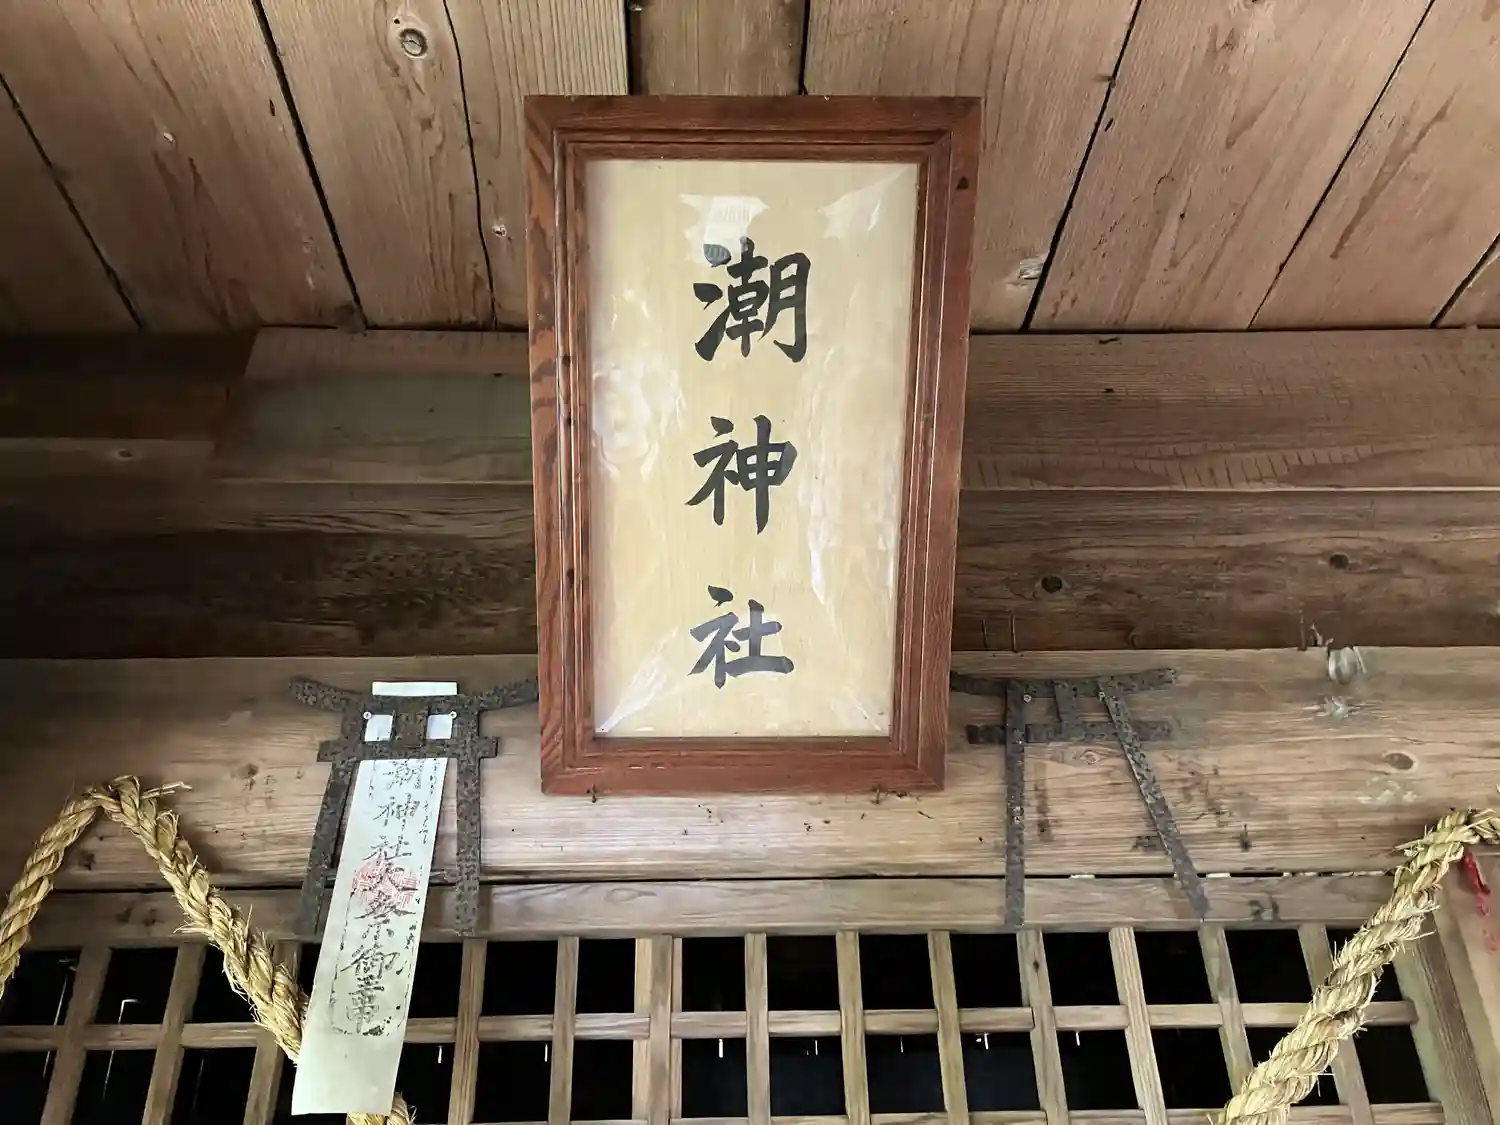 潮神社
潮神社大祭御